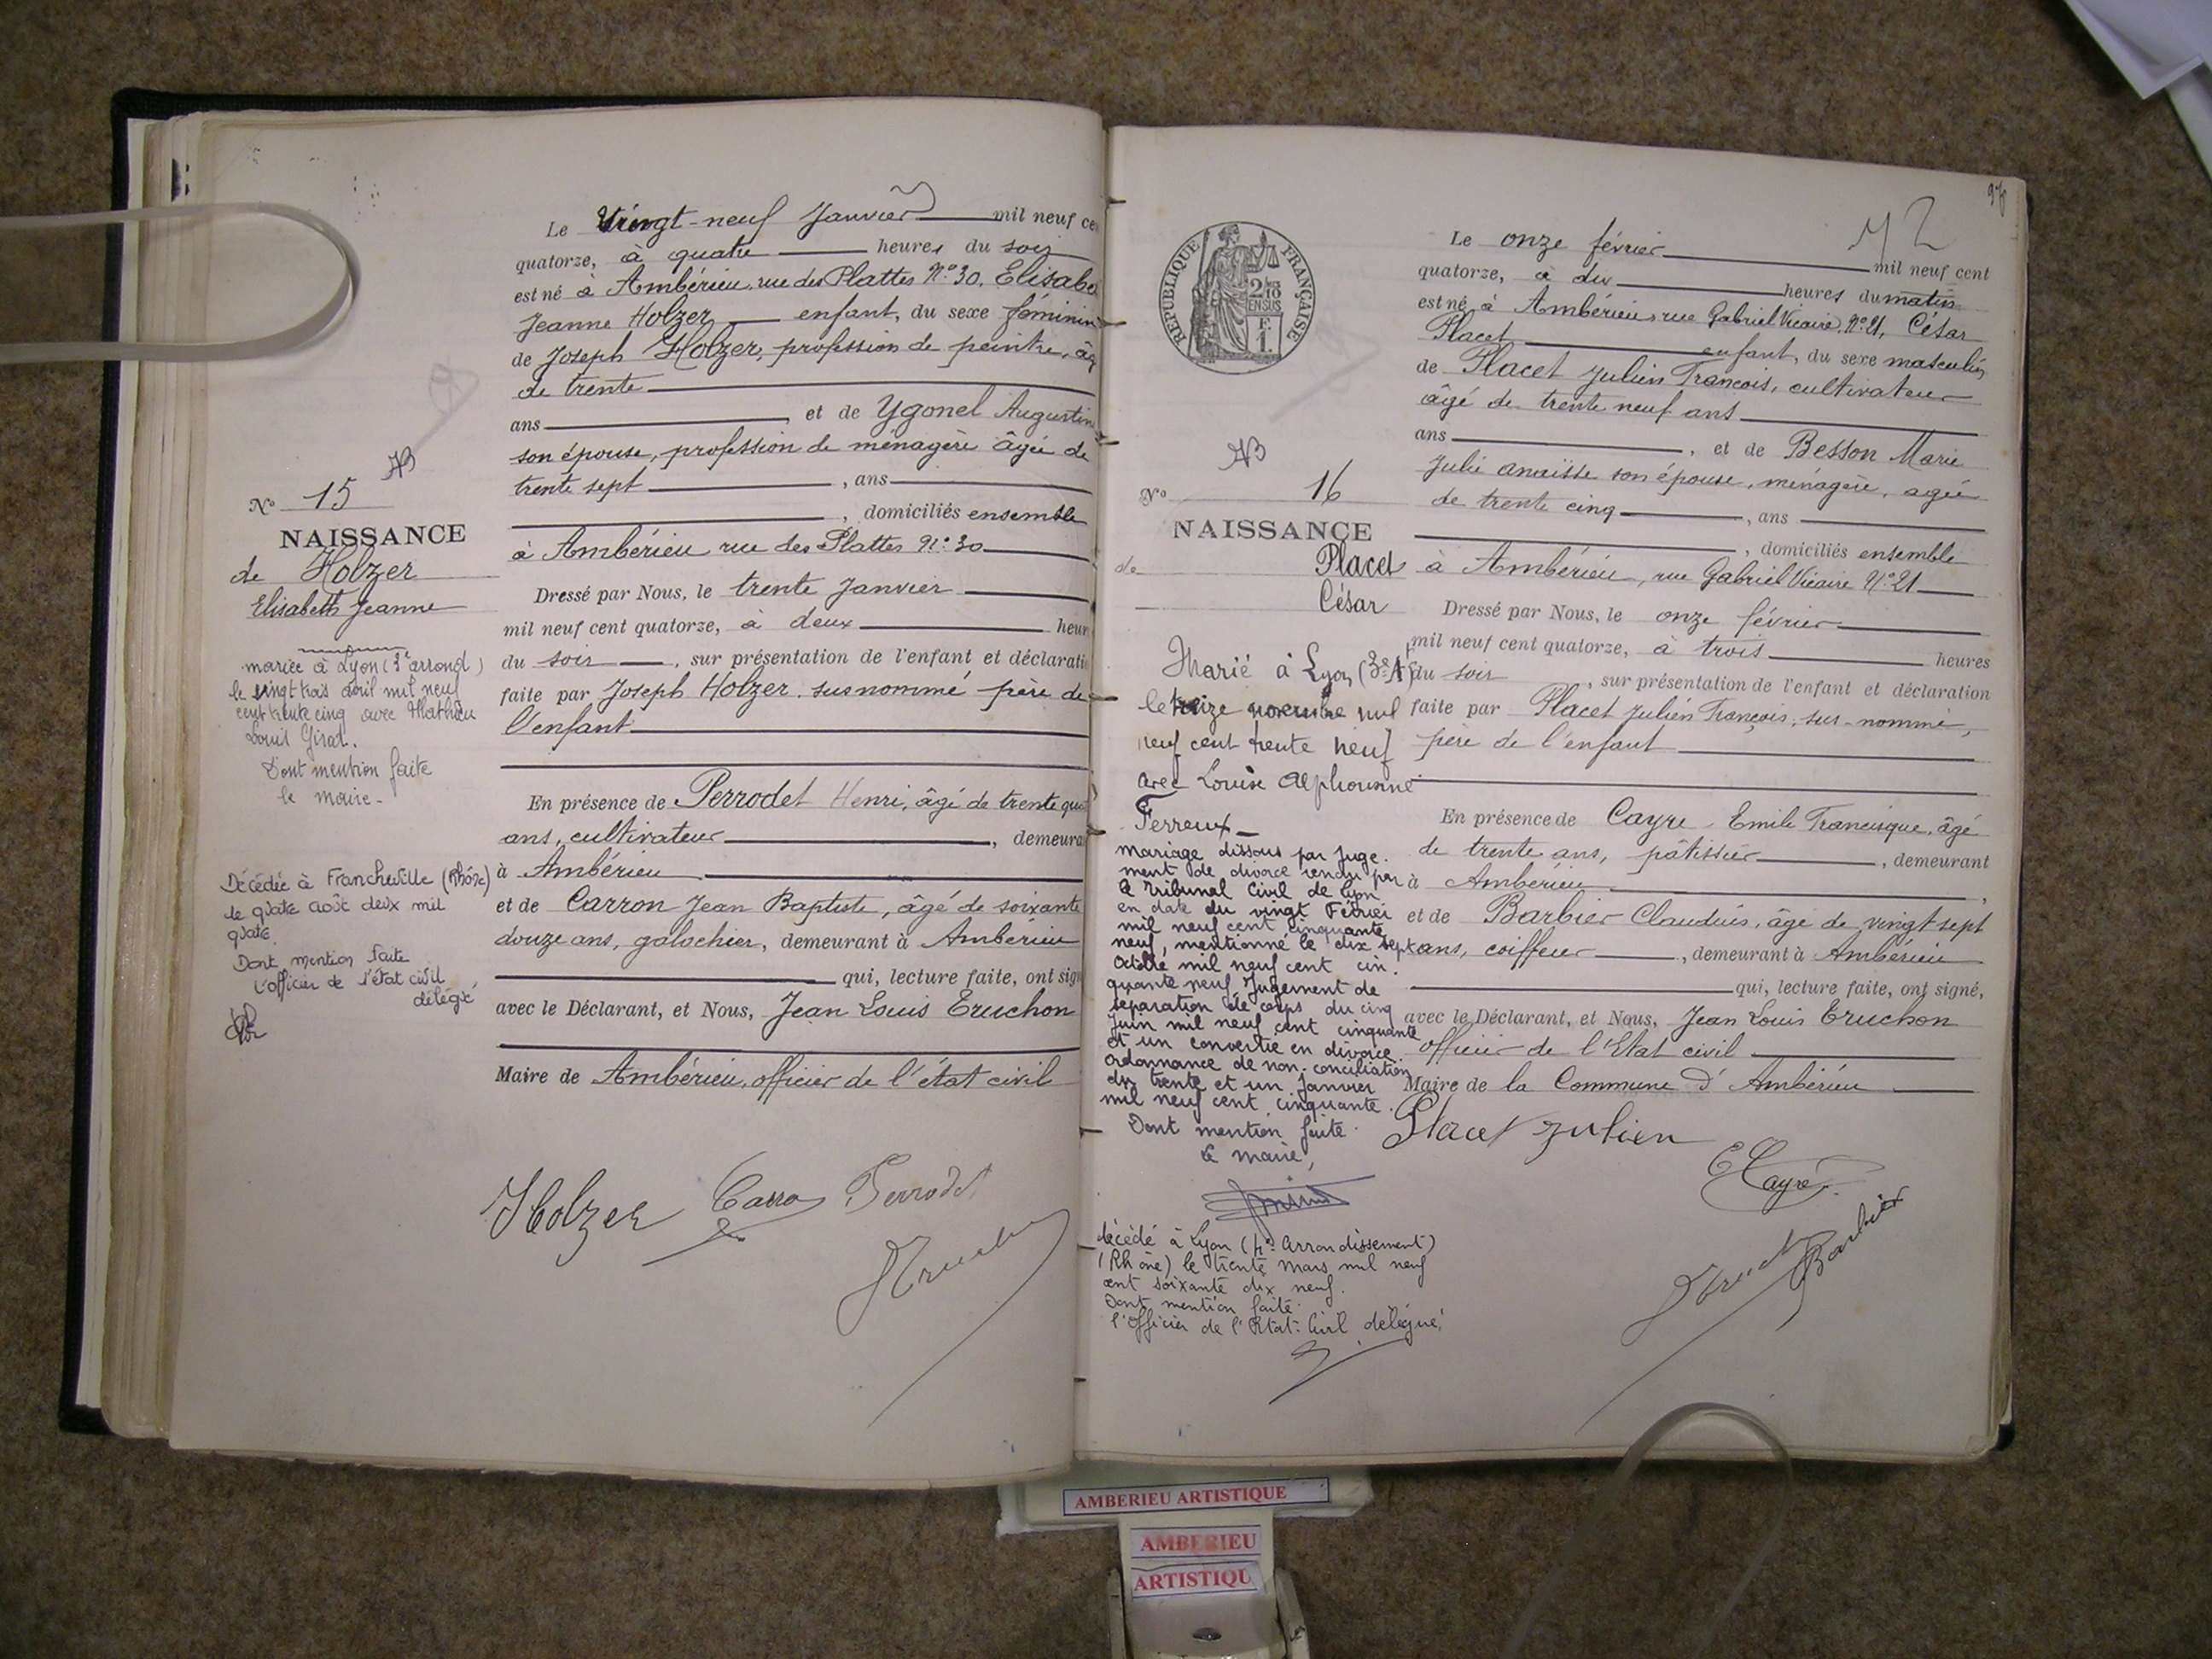 Le Vingt-neuf Janvier mil neuf ce
quatorze, à quatre heures du soir
est né à Ambérieu, rue des Plattes N° 30, Elisabe
Jeanne Holzer enfant, du sexe féminin
de Joseph Holzer, profession de peintre, âg
de trente
ans et de Ygonel Augustin
son épouse, profession de ménagère âgée de
trente sept, ans
, domiciliés ensemble
à Ambérieu rue des Plattes N° 30
Dressé par Nous, le trente Janvier
mil neuf cent quatorze, à deux heur
du soir, sur présentation de l'enfant et déclarati
faite par Joseph Holzer susnommé père de
l'enfant
En présence de Perrodet Henri, âgé de trente qua
ans, cultivateur, demeura
à Ambérieu
et de Carron Jean Baptiste, âgé de soixante
douze ans, galochier, demeurant à Ambérieu
qui, lecture faite, ont sign
avec le Déclarant, et Nous, Jean Louis Truchon
Maire de Ambérieu, officier de l'état civil
Holzer Carro Perrodet
Truchon
N° 15
NAISSANCE
de Holzer
Elisabeth Jeanne
mariée à Lyon (3e arrond)
le vingt trois avril mil neuf
cent trente cinq avec Mathieu
Louis Girat.
Dont mention faite
le maire -
Décédée à Francheville (Rhône)
le quatre août deux mil
quatre
Dont mention faite
L'officier de l'état civil
délégué
REPUBLIQUE FRANÇAISE
2/10
EN SUS
F.
1.
97
Le onze février mil neuf cent
quatorze, à dix heures du matin
est né à Ambérieu, rue Gabriel Vicaire, N° 21, César
Placet enfant, du sexe masculin
de Placet Julien François, cultivateur
âgé de trente neuf ans
ans, et de Besson Marie
Julie anaïsse son épouse, ménagère, agée
de trente cinq, ans
, domiciliés ensemble
à Ambérieu, rue Gabriel Vicaire N° 21
Dressé par Nous, le onze février
mil neuf cent quatorze, à trois heures
du soir, sur présentation de l'enfant et déclaration
faite par Placet Julien François, sus-nommé,
père de l'enfant
En présence de Cayre Emile Francisque, âgé
de trente ans, pâtissier, demeurant
à Ambérieu,
et de Barbier Claudius, âgé de vingt sept
ans, coiffeur, demeurant à Ambérieu
qui, lecture faite, ont signé,
avec le Déclarant, et Nous, Jean Louis Truchon
officier de l'Etat civil
Maire de la Commune d'Ambérieu
Placet Julien
E Cayre
Truchon Barbier
N° 16
NAISSANCE
de Placet
César
Marié à Lyon (3e Ar)
le treize novembre mil
neuf cent trente neuf
avec Louise Alphonsine
Ferreux
mariage dissous par juge-
ment de divorce rendu par
le Tribunal Civil de Lyon
en date du vingt Février
mil neuf cent cinquante
neuf, mentionné le dix sept
Octobre mil neuf cent cin-
quante neuf. Jugement de
séparation de corps du cinq
Juin mil neuf cent cinquante
et un convertie en divorce.
Ordonnance de non-conciliation
du trente et un Janvier
mil neuf cent cinquante.
Dont mention faite.
Le maire,
décédé à Lyon (4e Arrondissement)
(Rhône) le trente mars mil neuf
cent soixante dix neuf.
Dont mention faite.
l'Officier de l'Etat-Civil délégué,
AMBERIEU ARTISTIQUE
AMBERIEU
ARTISTIQU